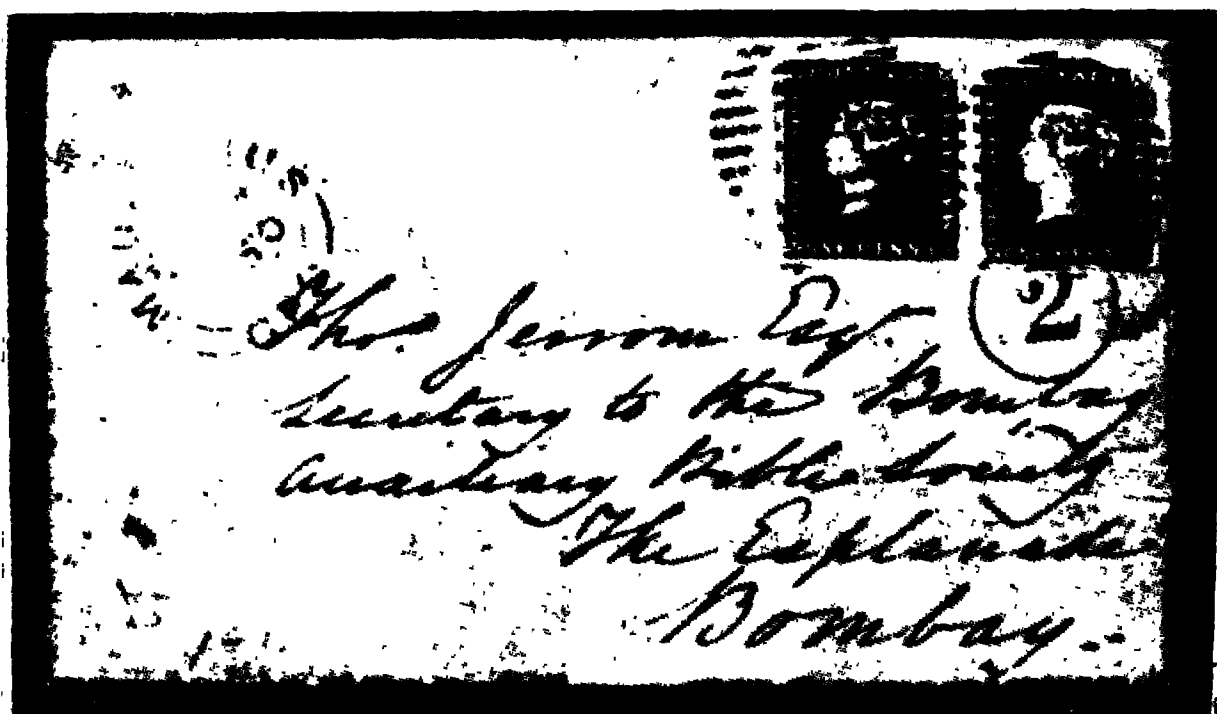 2
Thos. Jerrom Esqr.
Secretary to the Bombay
Auxiliary Bible Society
The Esplanade
Bombay.